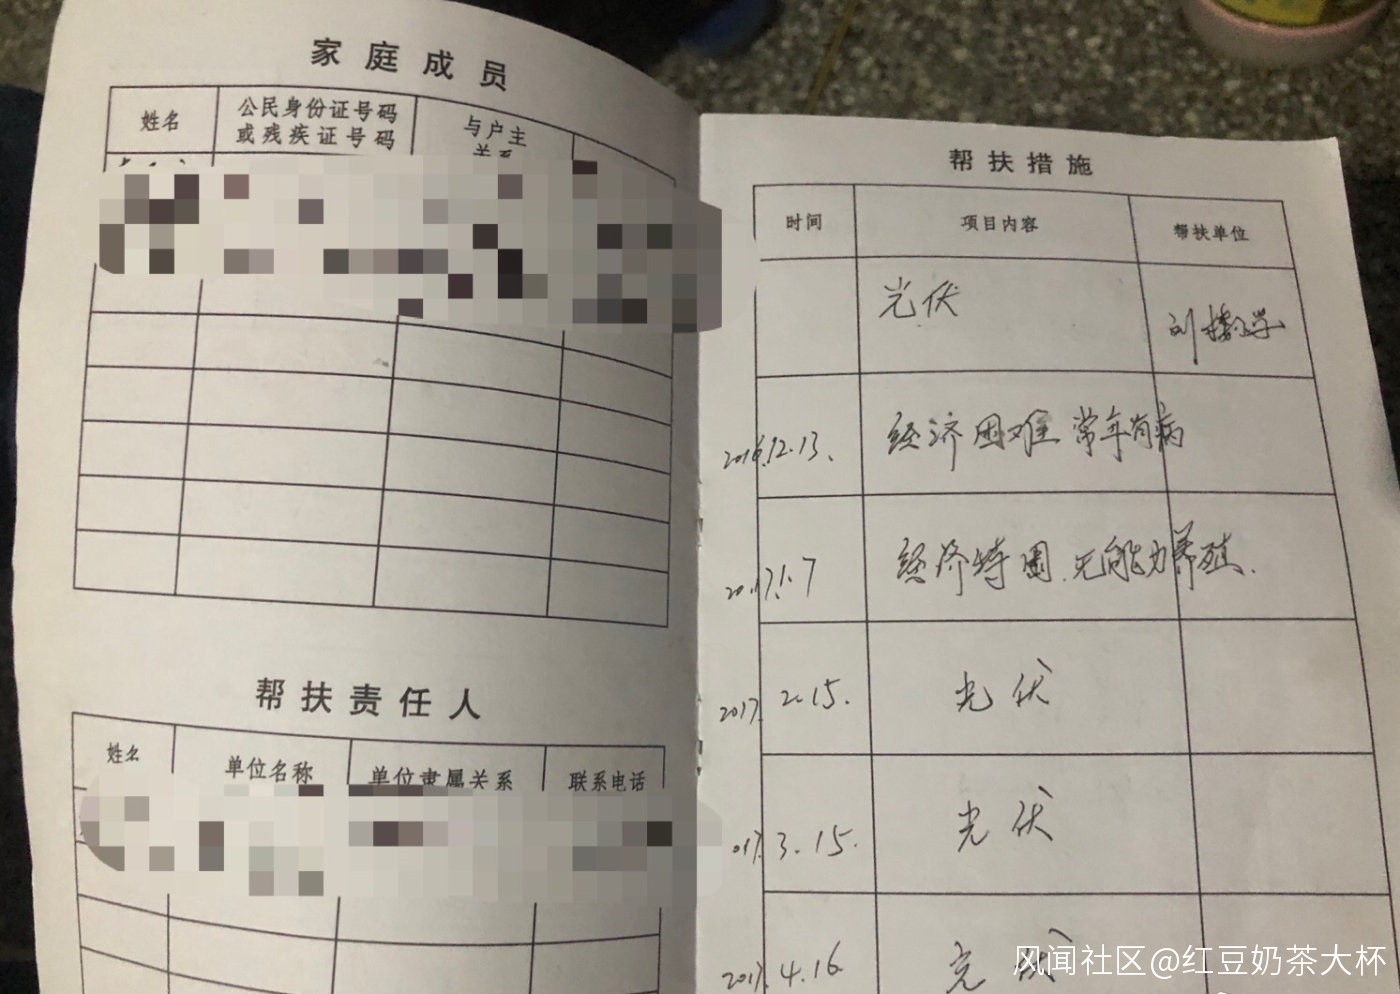 家庭成员
姓名
公民身份证号码
或残疾证号码
与户主
关系
帮扶责任人
姓名
单位名称
单位隶属关系
联系电话
帮扶措施
时间
项目内容
帮扶单位
光伏
刘楼小学
2016.12.13.
经济困难 常年有病
2017.1.7
经济特困.无能力养殖.
2017. 2.15.
光伏
017. 3.15.
光伏
2017. 4.16
风闻社区@红豆奶茶大杯